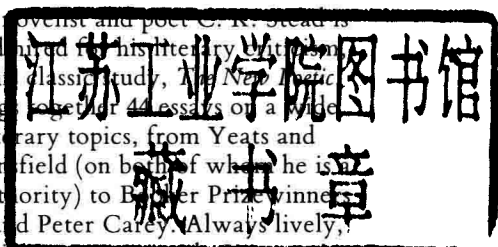 ovelist and poet C. K. Stead is
dmired for his literary criticism,
classic study, The New Poetic
gs together 44 essays on a wide
erary topics, from Yeats and
nsfield (on both of whom he is a
thority) to Booker Prize winners
nd Peter Carey. Always lively,
江苏工业学院图书馆
藏书章